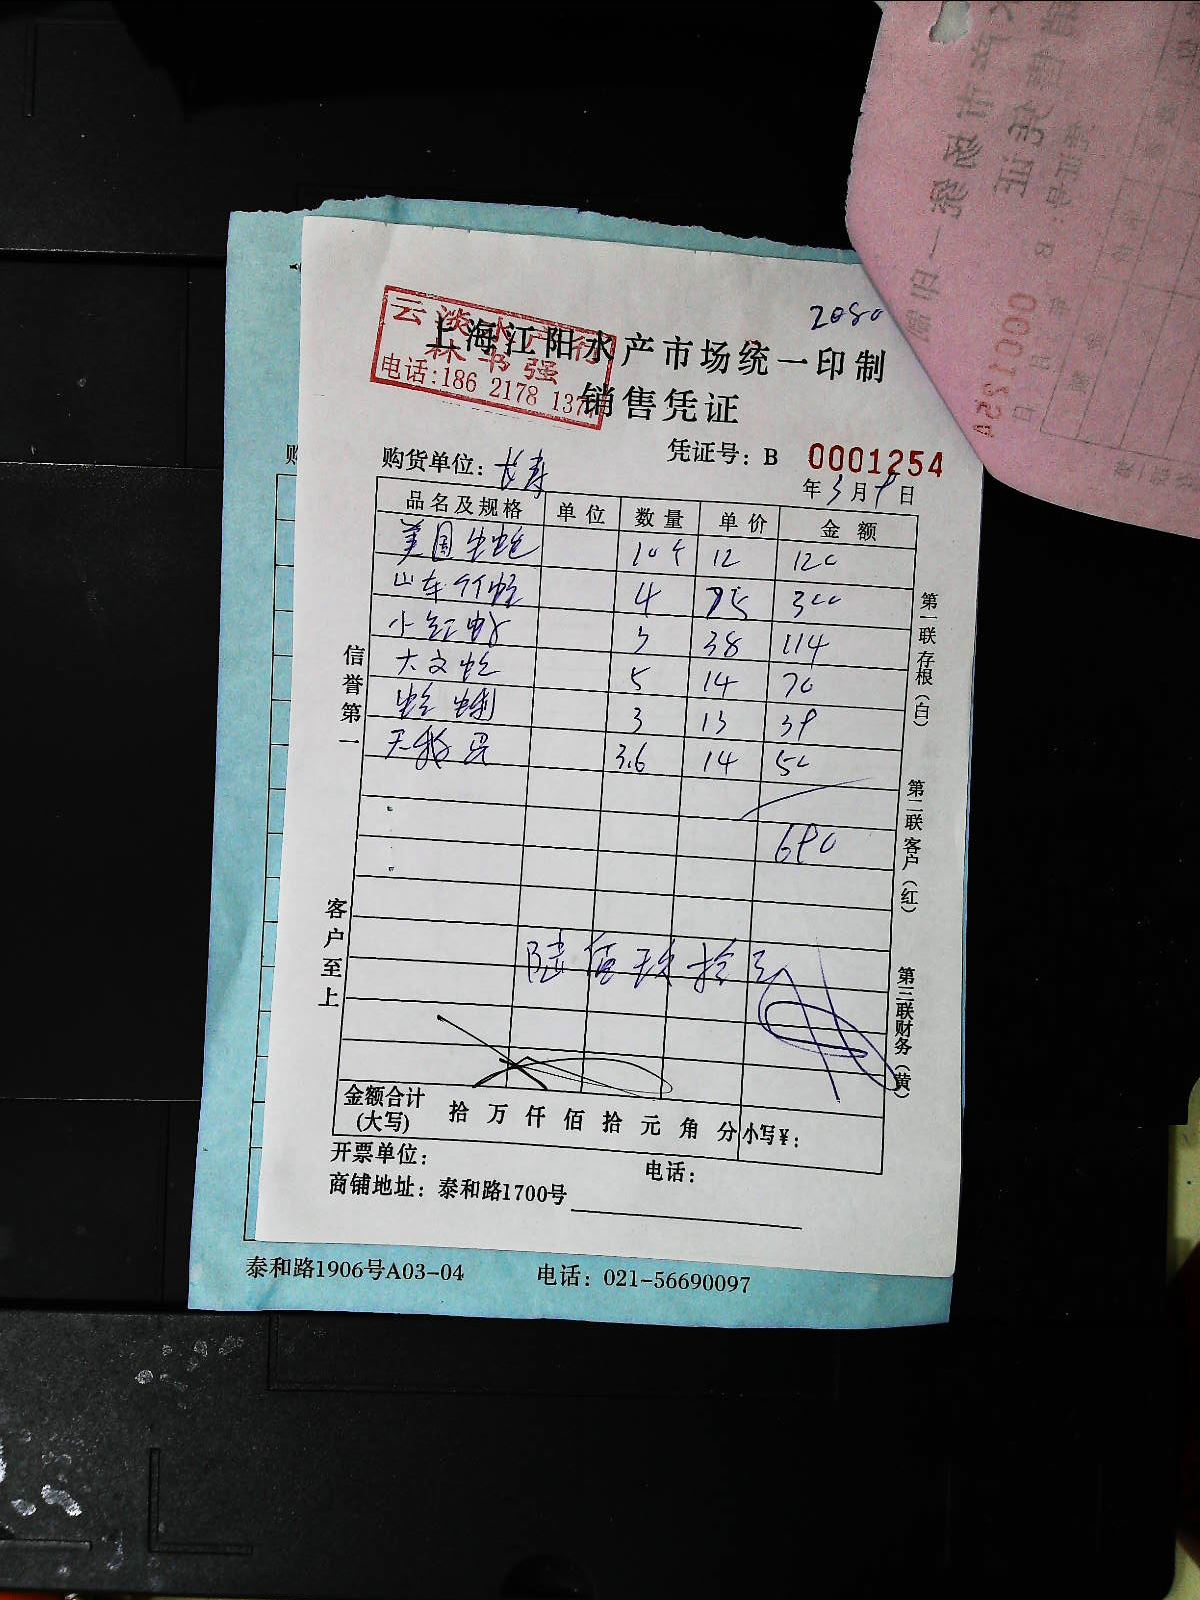 2080
云淡水产行
林书强
电话:186 2178 137
上海江阳水产市场统一印制
销售凭证
购货单位: 长寿
凭证号: B 0001254
年 3 月 9 日
品名及规格 单位 数量 单价 金额
美国生蚝 10个 12 120
山东竹蛏 4 75 300
小红虾 3 38 114
大文蛤 5 14 70
蛤蜊 3 13 39
3.6 14 50
690
陆佰玖拾元
信誉第一
客户至上
第一联存根(白)
第二联客户(红)
第三联财务(黄)
金额合计
(大写)
拾 万 仟 佰 拾 元 角 分 小写¥:
开票单位:
电话:
商铺地址: 泰和路1700号
泰和路1906号A03-04 电话: 021-56690097
购